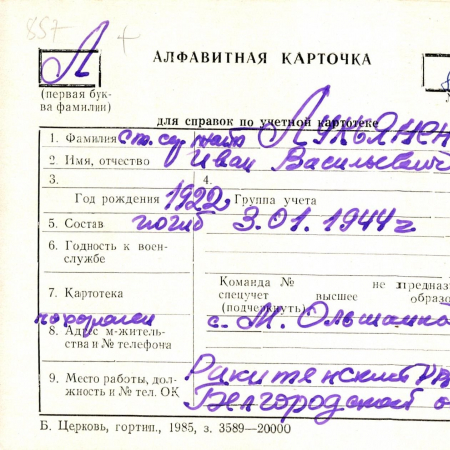 857 +
Л
АЛФАВИТНАЯ КАРТОЧКА
(первая бук-
ва фамилии)
для справок по учетной картотеке
1. Фамилия Ст. сержант ЛУКЬЯНЕН
2. Имя, отчество Иван Васильевич
3. 4.
Год рождения 1922 Группа учета
5. Состав погиб 3.01.1944 г
6. Годность к воен-
службе
Команда № не предназ
7. Картотека спецучет высшее образо
(подчеркнуть)
похоронен с. М. Ольшанка
8. Адрес м-житель-
ства и № телефона
9. Место работы, дол-
жность и № тел. ОК
Ракитянский
Белгородской о
Б. Церковь, гортип., 1985, з. 3589—20000